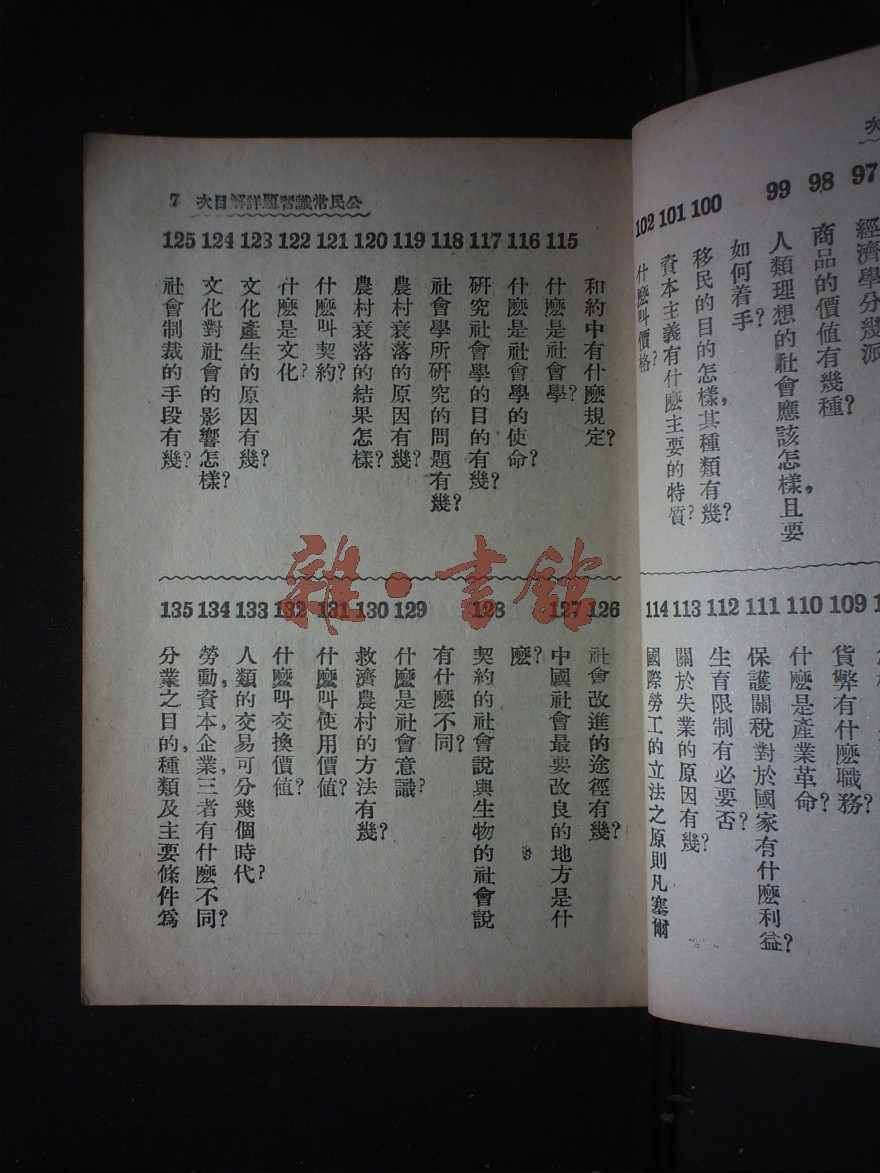 97 經濟學分幾派
98 商品的價值有幾種?
99 人類理想的社會應該怎樣,且要
如何着手?
100 移民的目的怎樣,其種類有幾?
101 資本主義有什麼主要的特質?
102 什麼叫價格?
109 貨弊有什麼職務?
110 什麼是產業革命?
111 保護關稅對於國家有什麼利益?
112 生育限制有必要否?
113 關於失業的原因有幾?
114 國際勞工的立法之原則凡塞爾
公民常識習題詳解目次 7
和約中有什麼規定?
115 什麼是社會學?
116 什麼是社會學的使命?
117 研究社會學的目的有幾?
118 社會學所研究的問題有幾?
119 農村衰落的原因有幾?
120 農村衰落的結果怎樣?
121 什麼叫契約?
122 什麼是文化?
123 文化產生的原因有幾?
124 文化對社會的影響怎樣?
125 社會制裁的手段有幾?
126 社會改進的途徑有幾?
127 中國社會最要改良的地方是什
麼?
128 契約的社會說與生物的社會說
有什麼不同?
129 什麼是社會意識?
130 救濟農村的方法有幾?
131 什麼叫使用價值?
132 什麼叫交換價值?
133 人類的交易可分幾個時代?
134 勞動,資本,企業,三者有什麼不同?
135 分業之目的,種類及主要條件爲
雜·書館